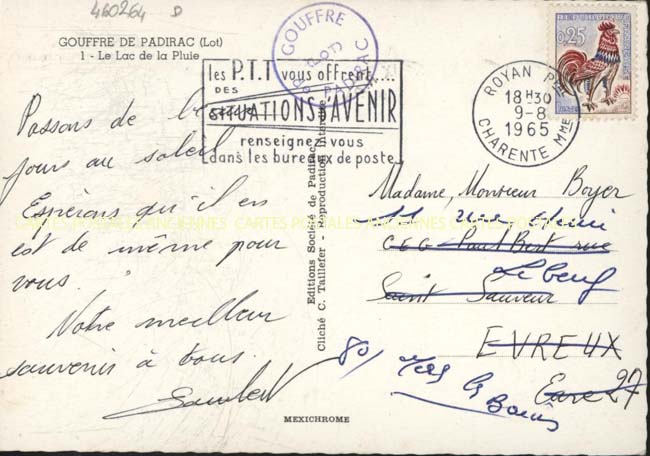 460264 D
GOUFFRE DE PADIRAC (Lot)
1 - Le Lac de la Pluie
GOUFFRE
(LOT)
PADIRAC
les P.T.T vous offrent....
DES
SITUATIONS D'AVENIR
renseignez-vous
dans les bureaux de poste
0,25
ROYAN PPAL
18H30
9-8
1965
CHARENTE MME
Passons de
jours au soleil
Espérons qu'il en
est de même pour
vous.
Notre meilleur
souvenir à tous.
Editions Société de Padirac
Cliché C. Taillefer - Reproduction interdite
Madame, Monsieur Boyer
11 rue
Paul Bert rue
Lebeuf
Saint Sauveur
EVREUX
Eure 27
80/ Mers les
Bains
MEXICHROME
CARTES POSTALES ANCIENNES CARTES POSTALES ANCIENNES CARTES POSTALES ANCIENNES